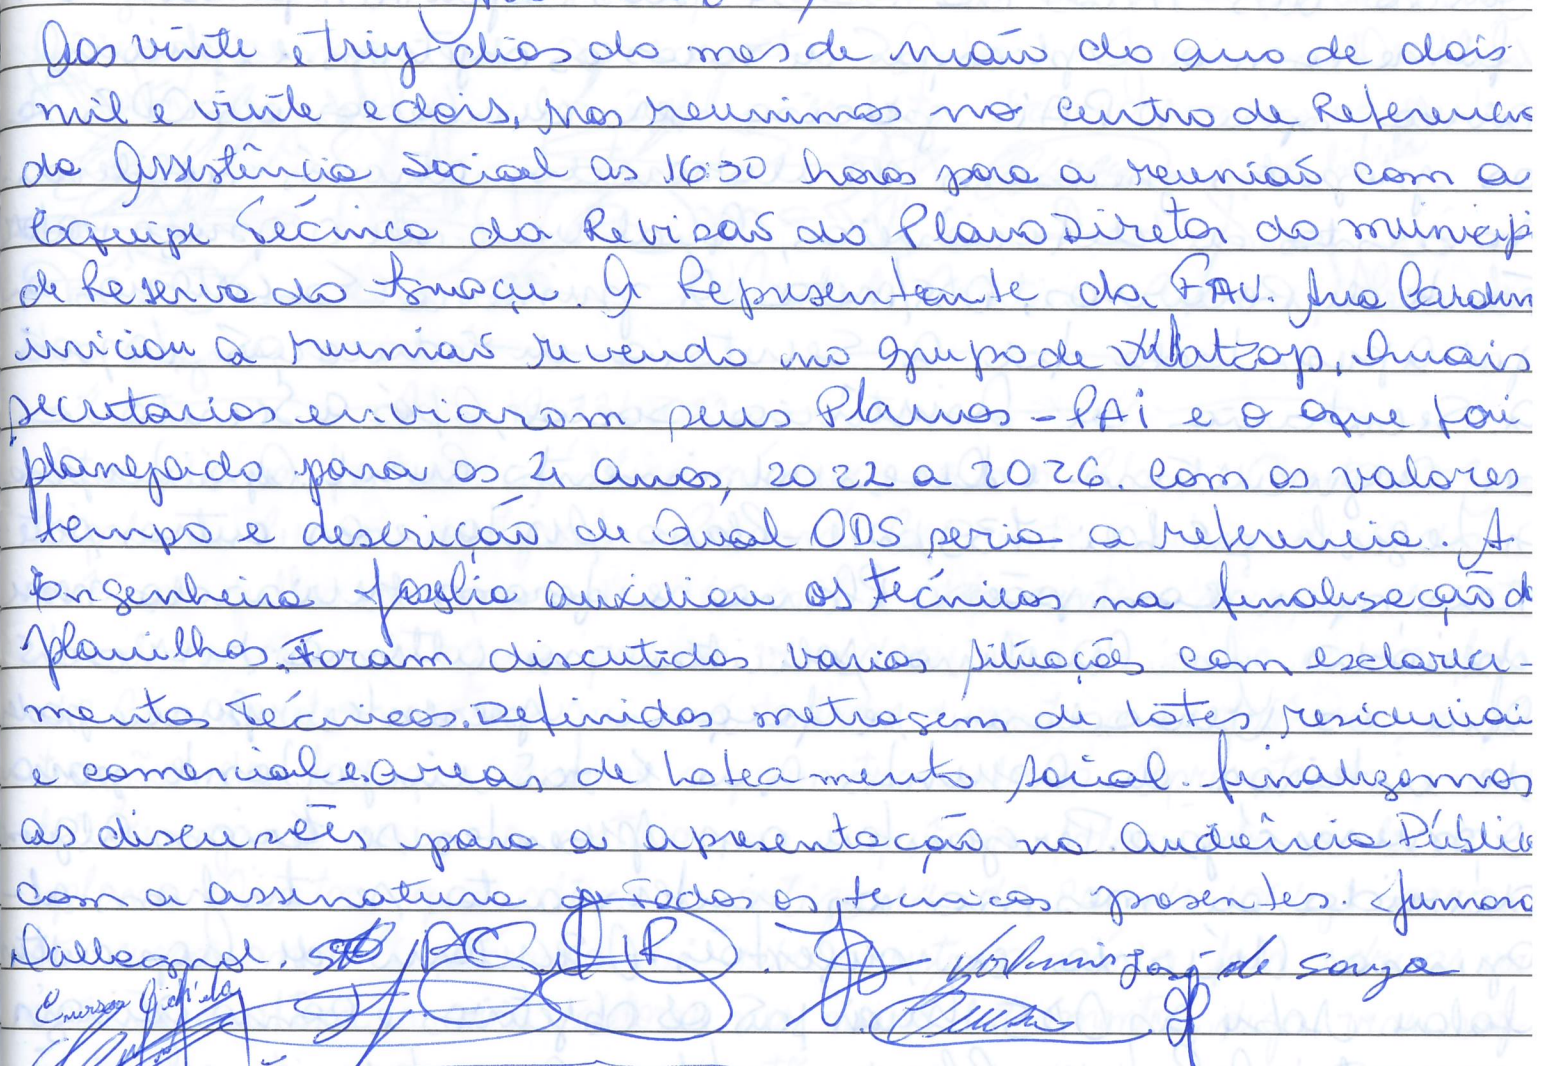 Aos vinte e treiz dias do mes de maio do ano de dois
mil e vinte e dois, nos reunimos no Centro de Referencia
da Assistência Social as 16:30 horas para a reunião com a
Equipe Técnica da Revisão do Plano Diretor do municip
de Reserva do Iguaçu. A Representante da FAU. Ana Carolin
iniciou a reunião revendo no grupo de Whatzap, Quais
secretarios enviaram seus Planos - PAI e o que foi
planejado para os 4 anos, 2022 a 2026. com os valores
tempo e descrição de Qual ODS seria a referencia. A
Engenheira auxiliou os Técnicos na finalização d
planilhas. Foram discutidas varias situações com esclareci-
mentos Técnicos. Definidos metragem de lotes residenciai
e comercial e areas de Loteamento Social. finalizamos
as discusões para a apresentação na Audiência Públic
com a assinatura de Todos os tecnicos presentes. Jumara
Dallagnol. Jose de Souza
Emerson